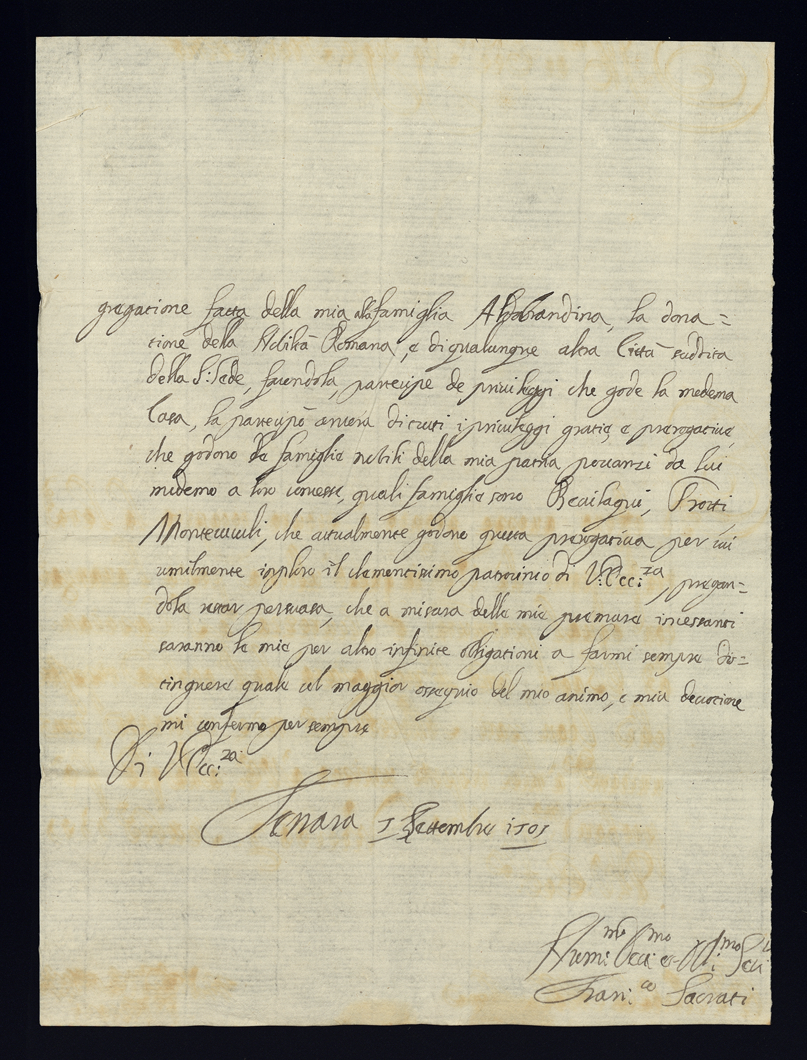 gregatione fatta della mia alla famiglia Aldobrandina, la dona=
tione della Nobiltà Romana, e di qualunque altra Città suddita
della S: Sede, facendola partecipe de privileggi che gode la medema
Casa, la partecipò ancora di tutti i privileggi gratie, e prerogative,
che godono le famiglie nobili della mia patria poc'anzi da lui
medemo a loro concesse, quali famiglie sono Bevilaqui, Trotti
Montecuculi, che attualmente godono questa prerogativa per cui
umilmente imploro il clementissimo patrocinio di V: Ecc:za, pregan=
dola restar persuasa, che a misura delle mie premure incessanti
saranno le mie per altro infinite obligationi a farmi sempre dis=
tinguere quale col maggior ossequio del mio animo, e mia devotione
mi confermo per sempre
Di V Ecc:za
Ferrara 5 Settembre 1705
Humi:mo Dev:mo et Obl:mo
Fran:co Sacrati